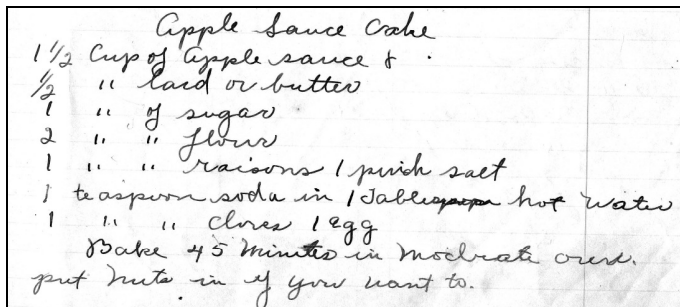 Apple Sauce Cake
1 1/2 Cup of Apple sauce &
1/2 " lard or butter
1 " of sugar
2 " " flour
1 " " raisons 1 pinch salt
1 teaspoon soda in 1 Table hot water
1 " " cloves 1 egg
Bake 45 Minutes in Modrate oven.
put nuts in if you want to.